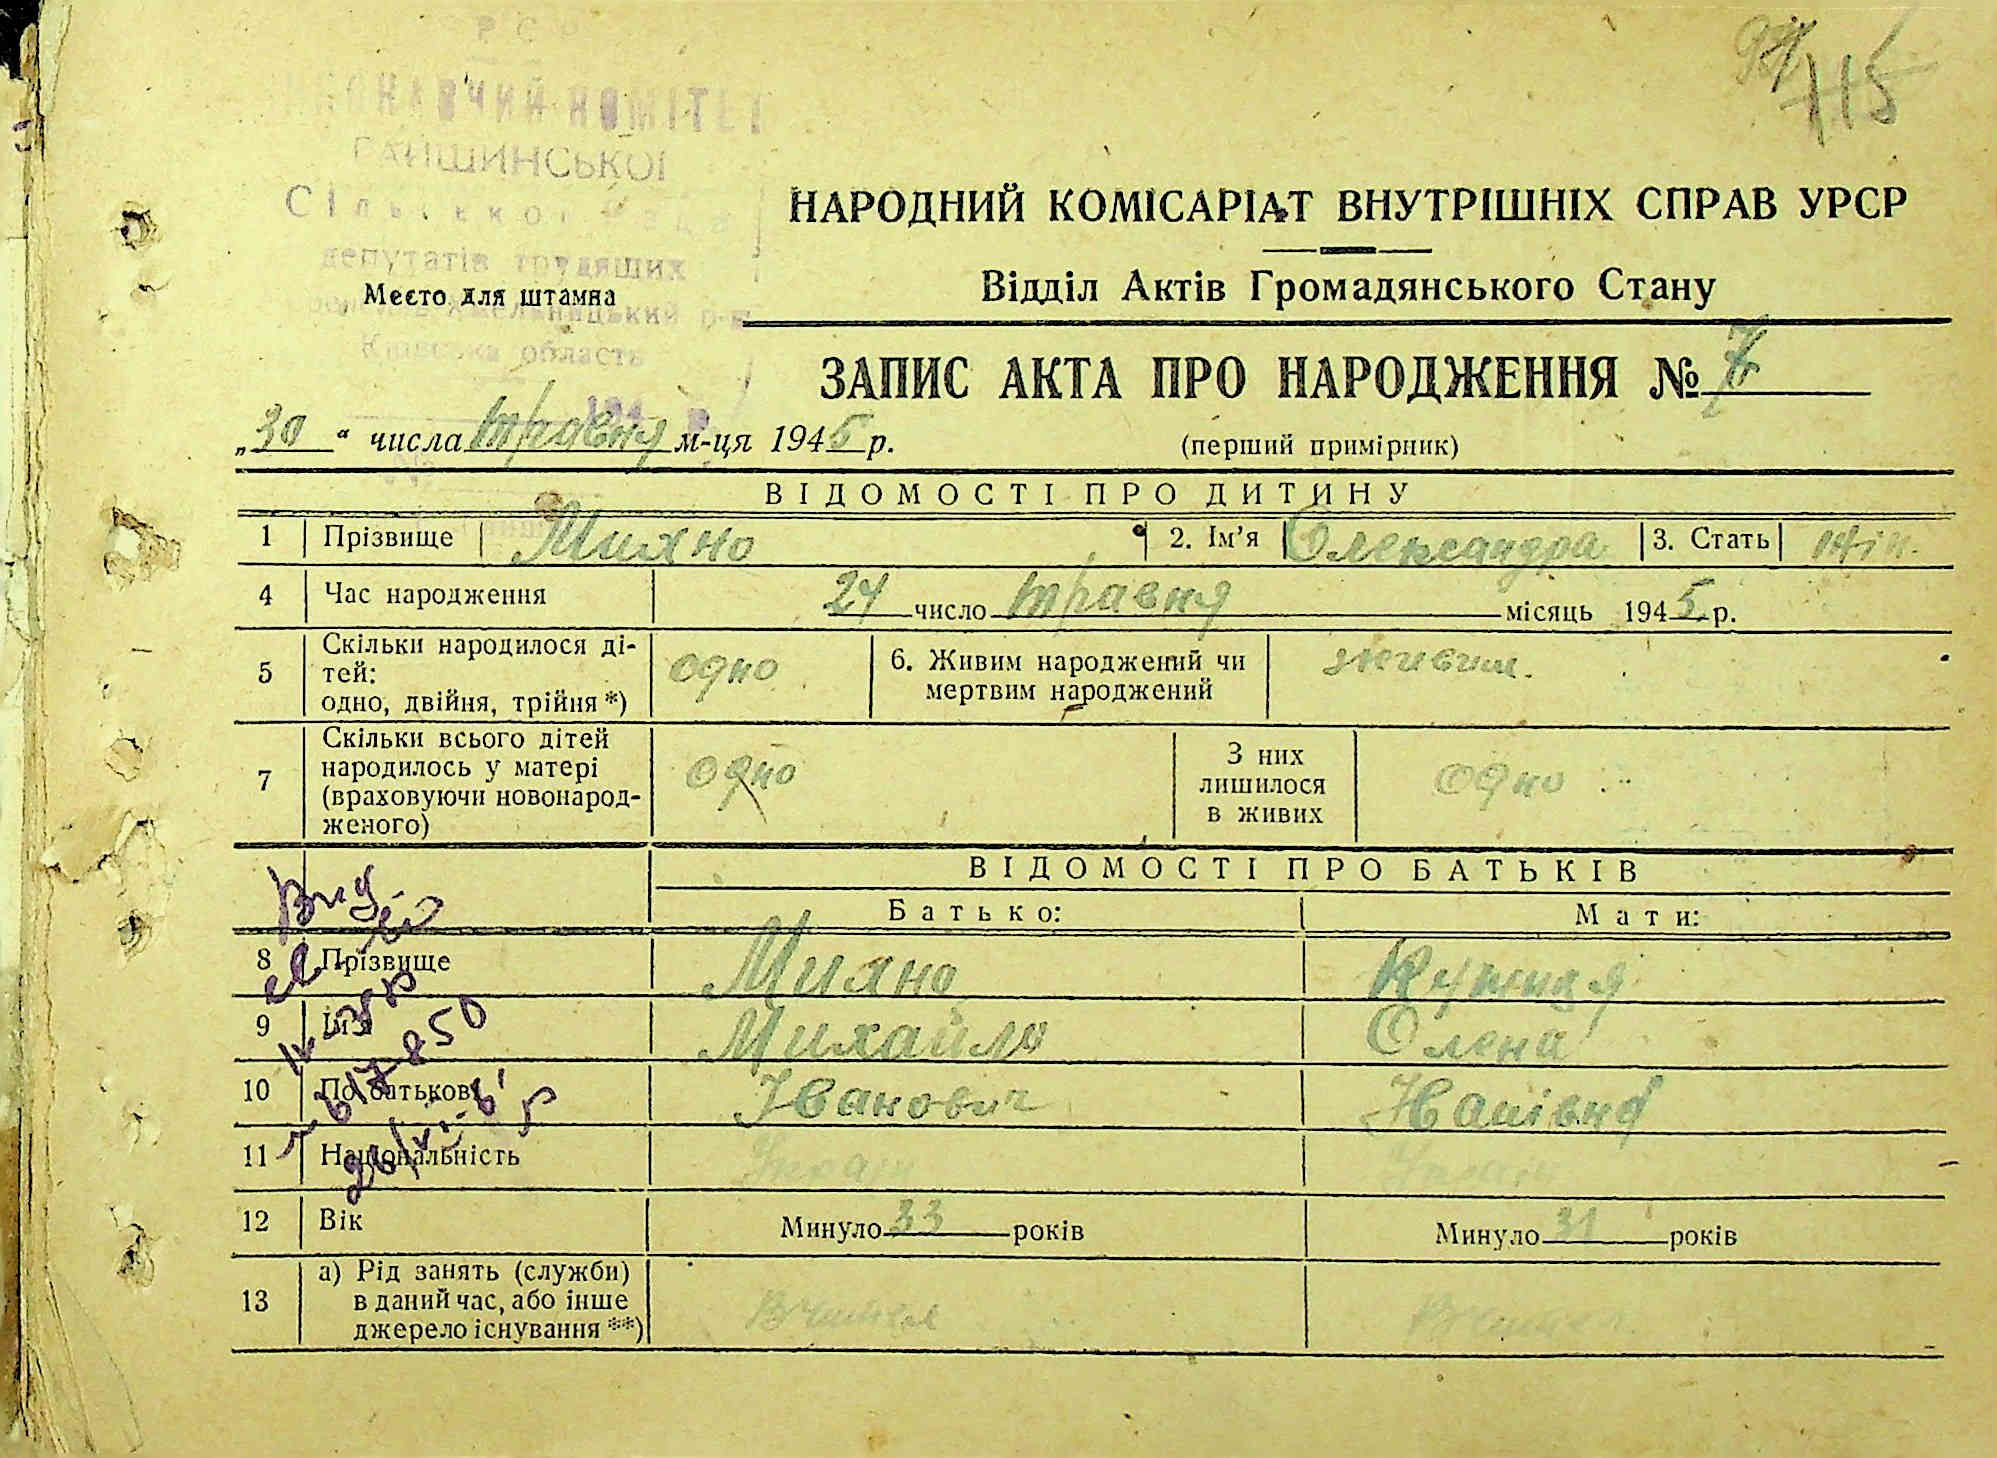 115
НАВЧИЙ КОМІТЕТ
ГАНШИНСЬКОЇ
депутатів трудящих
Хмельницький р-н
Київська область
Место для штампа
НАРОДНИЙ КОМІСАРІАТ ВНУТРІШНІХ СПРАВ УРСР
Відділ Актів Громадянського Стану
ЗАПИС АКТА ПРО НАРОДЖЕННЯ № 7
„30“ числа травня м-ця 1945 р.
(перший примірник)
ВІДОМОСТІ ПРО ДИТИНУ
1 Прізвище Михно 2. Ім'я Олександра 3. Стать жін.
4 Час народження 24 число травня місяць 1945 р.
5 Скільки народилося ді-
тей:
одно, двійня, трійня *)
одно
6. Живим народжений чи
мертвим народжений
живим.
7 Скільки всього дітей
народилось у матері
(враховуючи новонарод-
женого)
одно
З них
лишилося
в живих
одно
ВІДОМОСТІ ПРО БАТЬКІВ
Батько: Мати:
8 Прізвище Михно
9 Ім'я Михайло Олена
10 По батькові Іванович
11 Національність Україн Україн
12 Вік Минуло 33 років Минуло 31 років
13 а) Рід занять (служби)
в даний час, або інше
джерело існування **)
Вчитель Вчител.